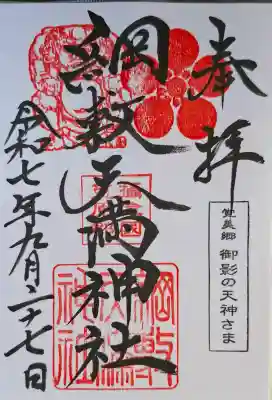 奉拝
覚美郷 御影の天神さま
綱敷天満神社
令和七年九月二十七日
綱敷天満神社